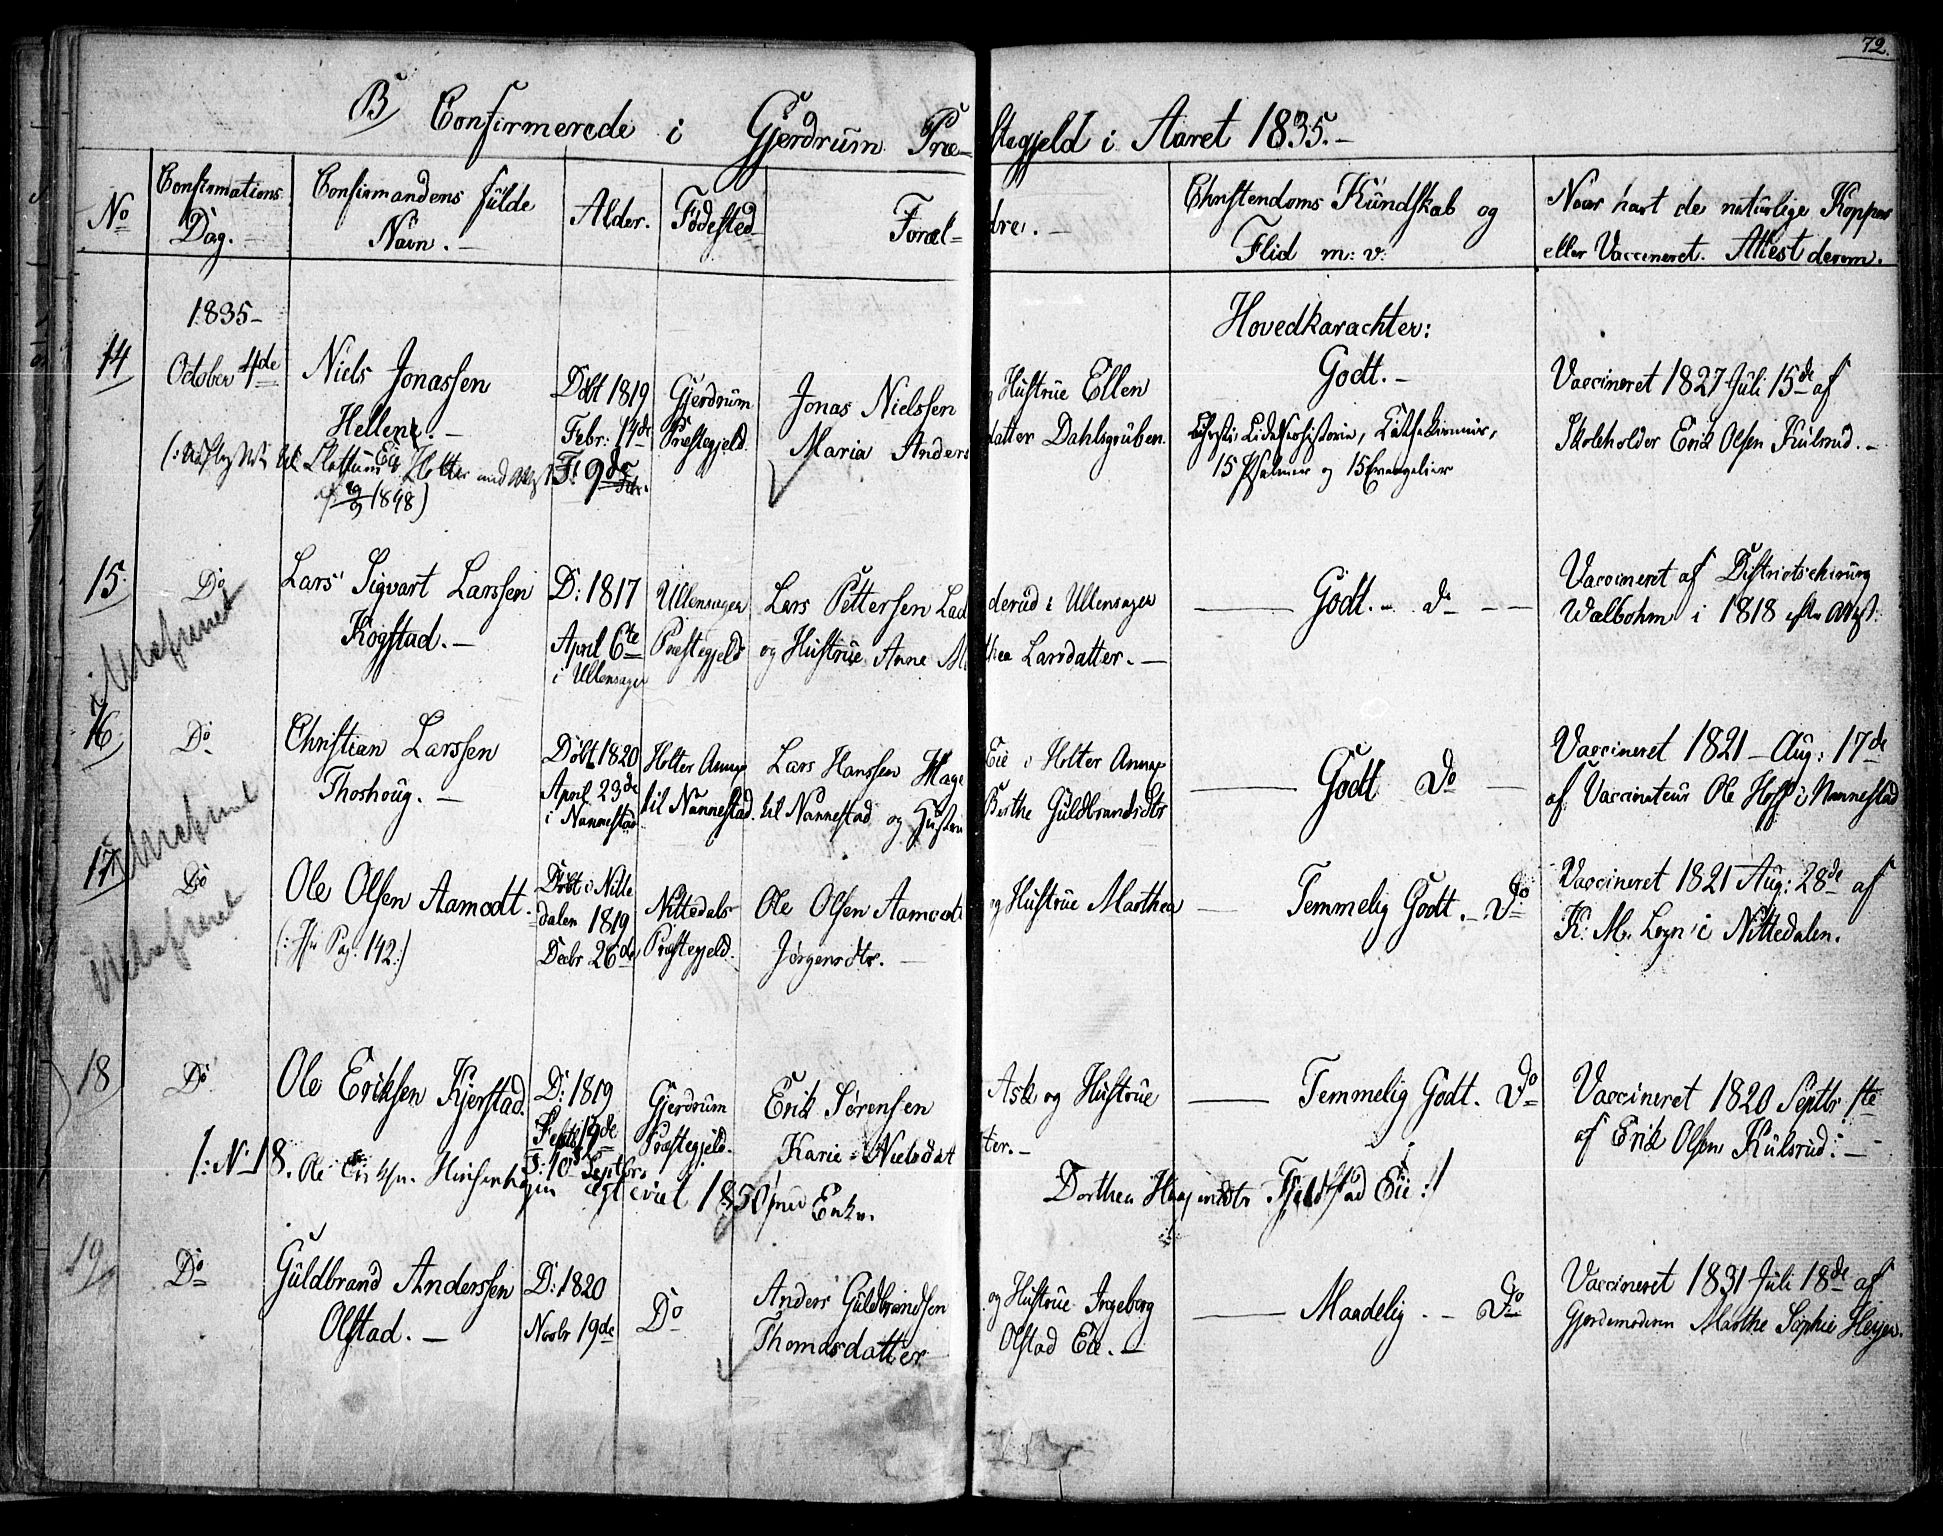 72.
B) Confirmerede i Gjerdrum Præstegjeld i Aaret 1835.-
No
Confirmations Dag.-
Confirmandens fulde Navn.-
Alder.
Fødested
Forældre.-
Christendoms Kundskab og Flid m: v:
Naar havt de naturlige Kopper eller Vaccineret. Attest derom.
1835-
Hovedkarachter:
14
October 4de
Niels Jonassen
Hellene.-
af 1848)
Døbt 1819
Febr: 14de
F: 9de
Gjerdrum
Præstegjeld
Jonas Nielssen
Maria Anders
og Hustrue Ellen
datter Dahlsgruben
Godt.-
15 Psalmer og 15 Evangelier
Vaccineret 1827 Juli 15de af
Skoleholder Erik Olsen Kulsrud.-
15.
Do
Lars Sigvart Larssen
Kogstad.-
D: 1817
April 6te
i Ullensager
Ullensager
Præstegjeld
Lars Pettersen Lad
og Hustrue Anne M
derud i Ullensager
thea Larsdatter.-
Godt.- do
Vaccineret af Districtschirurg
Walbohm i 1818 efter Attest:
16.
Do
Christian Larssen
Thoshoug.-
Døbt 1820
April 23de
i Nannestad
Holter Annex
til Nannestad.
Lars Hanssen Hage
til Nannestad og Hustru
Eie i Holter Annex
Berthe Guldbrandsdtr
Godt Do
Vaccineret 1821 - Aug: 17de
af Vaccinateur Ole Hoff i Nannestad
17.
Do
Ole Olsen Aamodt.
Pag: 142:)
Døbt i Nitte
dalen 1819
Decbr 26de
Nittedals
Præstegjeld.
Ole Olsen Aamodt
Jørgensdtr.-
og Hustrue Marthea
Temmelig Godt.- Do
Vaccineret 1821 Aug: 28de af
K: M. Legn i Nittedalen.
18
Do
Ole Eriksen Kjerstad.
D: 1819
Septbr 19de
F: 10de Septbrs
Gjerdrum
Præstegjeld.
Erik Sørensen
Karie Nielsdat
Ask og Hustrue
ter.-
Temmelig Godt. Do
Vaccineret 1820 Septbr 1ste
af Erik Olsen Kulsrud:-
/: No 18. Ole 1850 Enke. Dorthea Fjeldstad Eie :/
19
Do
Guldbrand Anderssen
Olstad.-
D: 1820
Novbr 19de
Do
Anders Guldbrandsen
Thomasdatter
og Hustrue Ingeborg
Olstad Eie.-
Maadelig.- Do
Vaccineret 1831 Juli 18de af
Gjordemoderen Marthe Sophie Heyer.